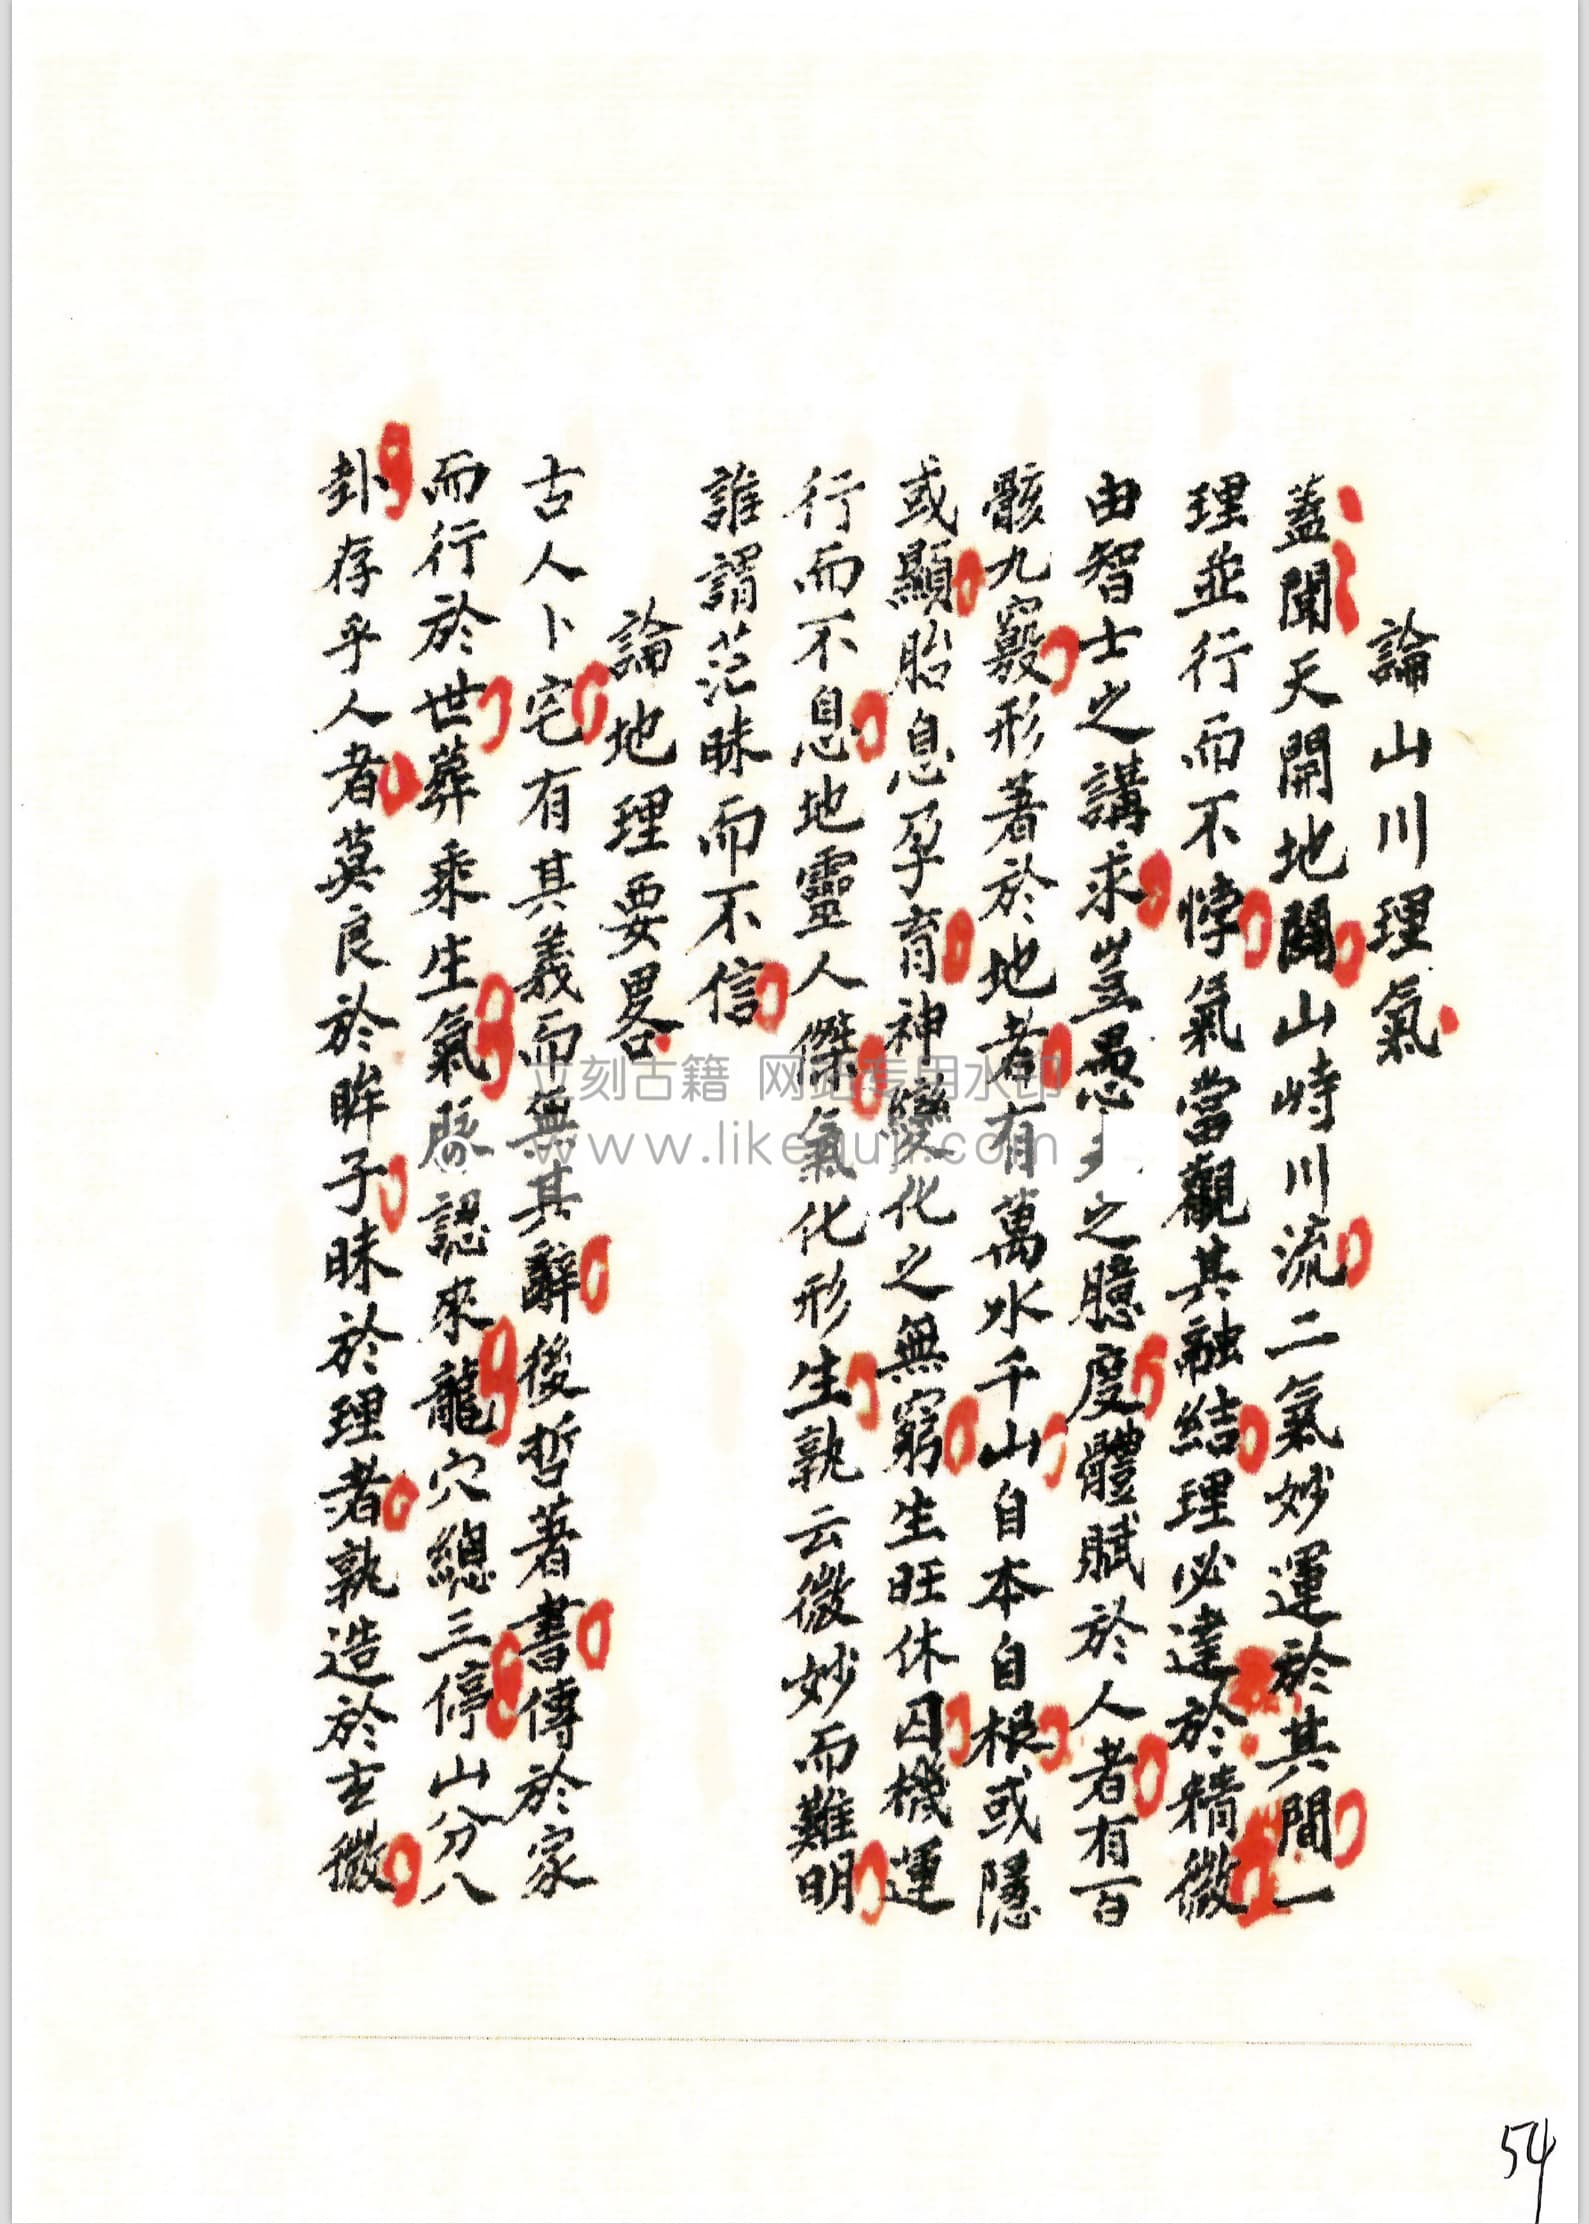 論山川理氣
蓋聞天開地闢山峙川流二氣妙運於其間一
理並行而不悖氣當觀其融結理必達於精微
由智士之講求豈愚之臆度體賦於人者有百
骸九竅形著於地者有萬水千山自本自根或隱
或顯胎息孕育神變化之無窮生旺休囚機運
行而不息地靈人傑氣化形生孰云微妙而難明
誰謂茫昧而不信
論地理要畧
古人卜宅有其義而無其辭後哲著書傳於家
而行於世葬乘生氣脈認來龍穴總三停山分八
卦存乎人者莫良於眸子昧於理者孰造於玄微
立刻古籍 网站专用水印
www.likeguji.com
54